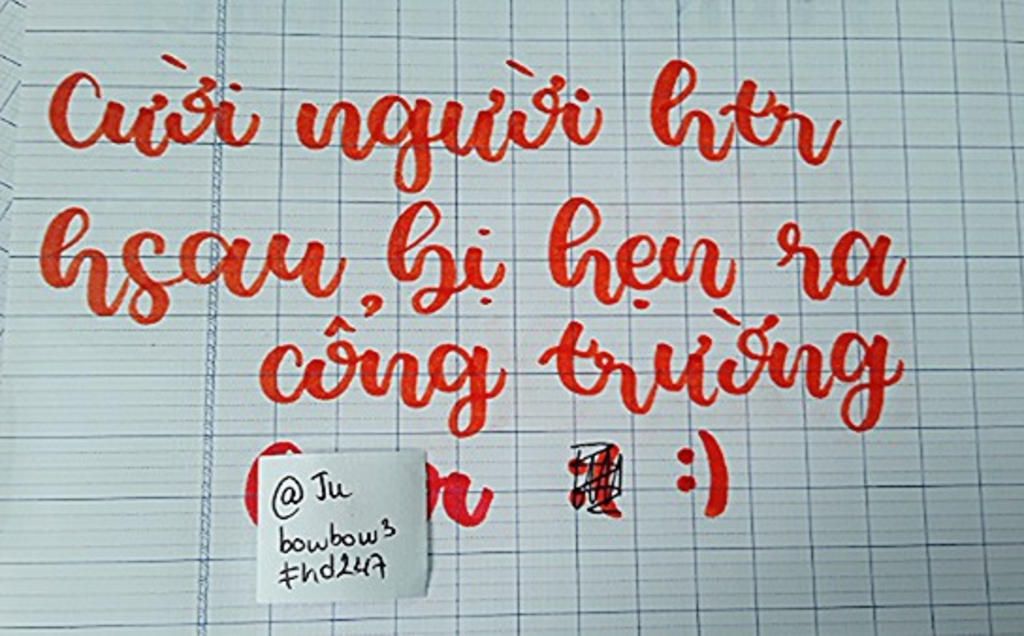 Cười người htr
hsau bị hẹn ra
cổng trường
:)
@Ju
bowbow3
#hd247